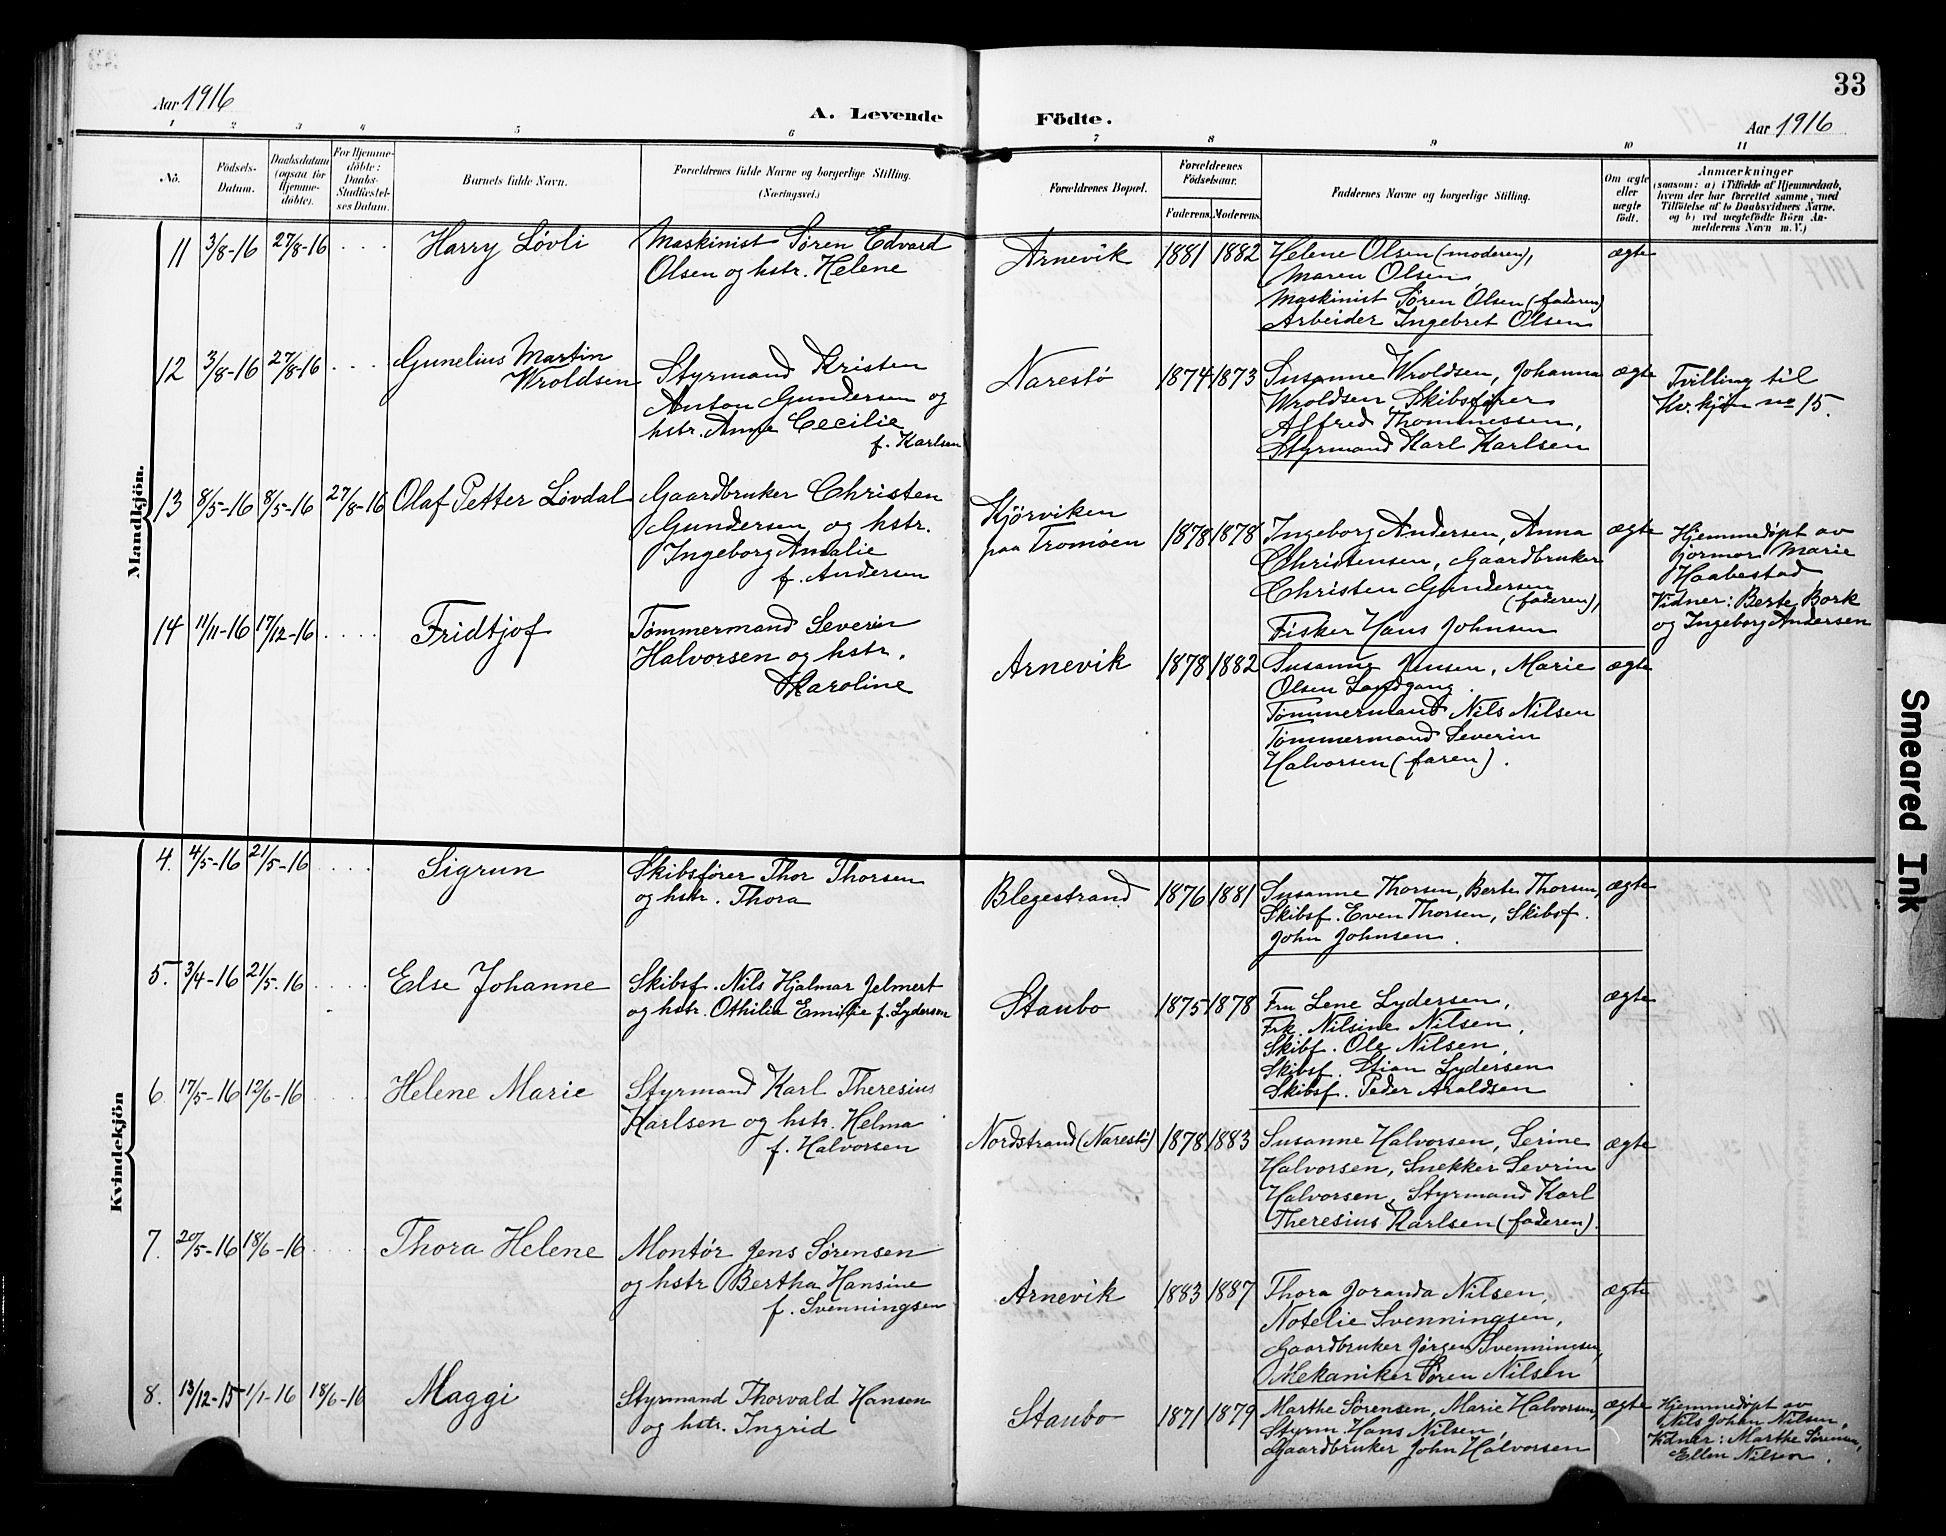 33
Aar 1916
A. Levende Födte.
Aar 1916
1 2 3 4 5 6 7 8 9 10 11
No.
Födsels-Datum.
Daabsdatum (ogsaa for Hjemme-döbte).
For Hjemme-döbte: Daabs-Stadfæstel-ses Datum.
Barnets fulde Navn.
Forældrenes fulde Navne og borgerlige Stilling. (Næringsvei.)
Forældrenes Bopæl.
Forældrenes Födselsaar.
Faderens. Moderens.
Faddernes Navne og borgerlige Stilling.
Om ægte eller uægte födt.
Anmærkninger
(saasom: a) i Tilfælde af Hjemmedaab, hvem der har forrettet samme, med Tilföielse af to Daabsvidners Navne, og b) ved uægtefödte Börn An-melderens Navn m. V.)
Mandkjön.
11 3/8-16 27/8-16 . . . Harry Løvli
Maskinist Søren Edvard
Olsen og hstr. Helene
Arnevik 1881 1882
Helene Olsen (moderen),
Maren Olsen,
Maskinist Søren Olsen (faderen)
Arbeider Ingebret Olsen
ægte
12 3/8-16 27/8-16 . . . Gunelius Martin
Wroldsen
Styrmand Kristen
Anton Gundersen og
hstr. Anne Cecilie
f. Karlsen
Narestø 1874 1873
Susanne Wroldsen, Johanna
Wroldsen Skibsfører
Alfred Thommessen,
Styrmand Karl Karlsen
ægte
Tvilling til
Kv.kjøn no 15.
13 8/5-16 8/5-16 27/8-16 Olaf Petter Løvdal
Gaardbruker Christen
Gundersen og hstr.
Ingeborg Amalie
f. Andersen
Kjörviken
paa Tromøen 1878 1878
Ingeborg Andersen, Anna
Christensen, Gaardbruker
Christen Gundersen
(faderen),
Fisker Hans Johnsen
ægte
Hjemmedöpt av
jormor Marie
Haabestad
Vidner: Berte Bork
og Ingeborg Andersen
14 11/11-16 17/12-16 . . . . Fridtjof
Tømmermand Severin
Halvorsen og hstr.
Karoline
Arnevik 1878 1882
Susanne Jensen, Marie
Olsen Landgang.
Tømmermand Nils Nilsen
Tømmermand Severin
Halvorsen (faren).
ægte
Kvindekjön
4. 4/5-16 21/5-16 . . . . Sigrun
Skibsfører Thor Thorsen
og hstr. Thora
Blegestrand 1876 1881
Susanne Thorsen, Berte Thorsen,
Skibsf. Even Thorsen, Skibsf.
John Johnsen.
ægte
5. 3/4-16 21/5-16 . . . . Else Johanne
Skibsf. Nils Hjalmar Jelmert
og hstr. Othilia Emilie f. Lydersen
Staubo 1875 1878
Fru Lene Lydersen,
Frk. Nilsine Nilsen,
Skibf. Ole Nilsen,
Skibsf. Stian Lydersen
Skibsf. Peder Araldsen
ægte
6. 17/5-16 12/6-16 . . . . Helene Marie
Styrmand Karl Theresius
Karlsen og hstr. Helma
f. Halvorsen
Nordstrand (Narestö) 1878 1883
Susanne Halvorsen, Serine
Halvorsen, Snekker Sevrin
Halvorsen, Styrmand Karl
Theresius Karlsen (faderen).
ægte
7. 20/5-16 18/6-16 . . . . Thora Helene
Montør Jens Sørensen
og hstr Bertha Hansine
f. Svenningsen
Arnevik 1883 1887
Thora Joranda Nilsen,
Notelie Svenningsen,
Gaardbruker Jørgen Svenningsen,
Mekaniker Søren Nilsen
ægte
8. 13/12-15 1/1-16 18/6-16 Maggi
Styrmand Thorvald Hansen
og hstr. Ingrid
Staubo 1871 1879
Marthe Sørensen, Marie Halvorsen,
Styrm. Hans Nilsen,
Gaardbruker John Halvorsen
ægte
Hjemmedöpt av
Nils Johan Nilsen.
Vidner: Marthe Sørensen,
Ellen Nilsen.
Smeared Ink